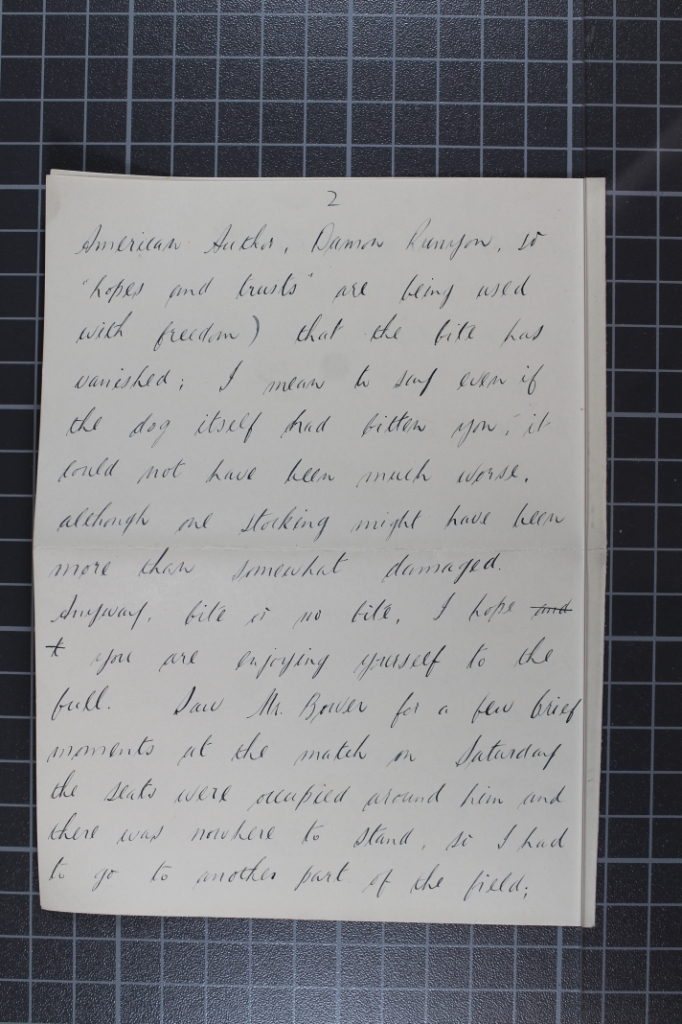 2
American Author, Damon Runyon, so
"hopes and trusts" are being used
with freedom) that the bite has
vanished; I mean to say even if
the dog itself had bitten you, it
could not have been much worse,
although one stocking might have been
more than somewhat damaged.
Anyway, bite or no bite, I hope and
t you are enjoying yourself to the
full. Saw Mr. Bower for a few brief
moments at the match on Saturday
the seats were occupied around him and
there was nowhere to stand, so I had
to go to another part of the field;